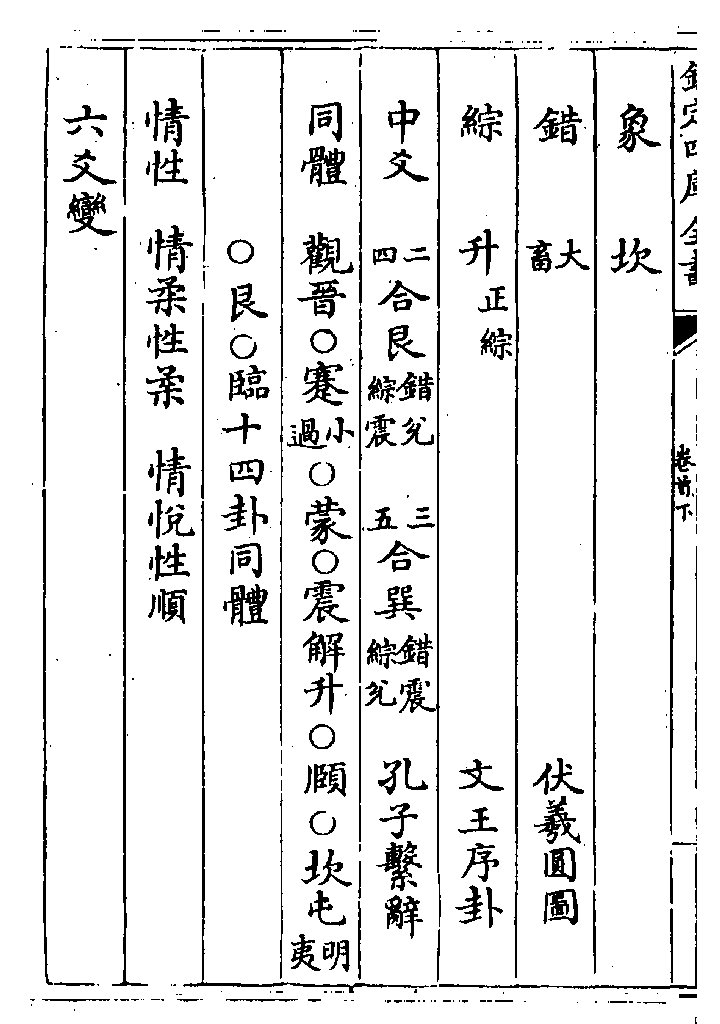 欽定四庫全書
卷首下
象 坎
錯 大畜 伏羲圓圖
綜 升 正綜 文王序卦
中爻 二四合艮 錯兌綜震 三五合巽 錯震綜兌 孔子繫辭
同體 觀晉○蹇小過○蒙○震解升○頤○坎屯明夷
○艮○臨十四卦同體
情性 情柔性柔 情悅性順
六爻變